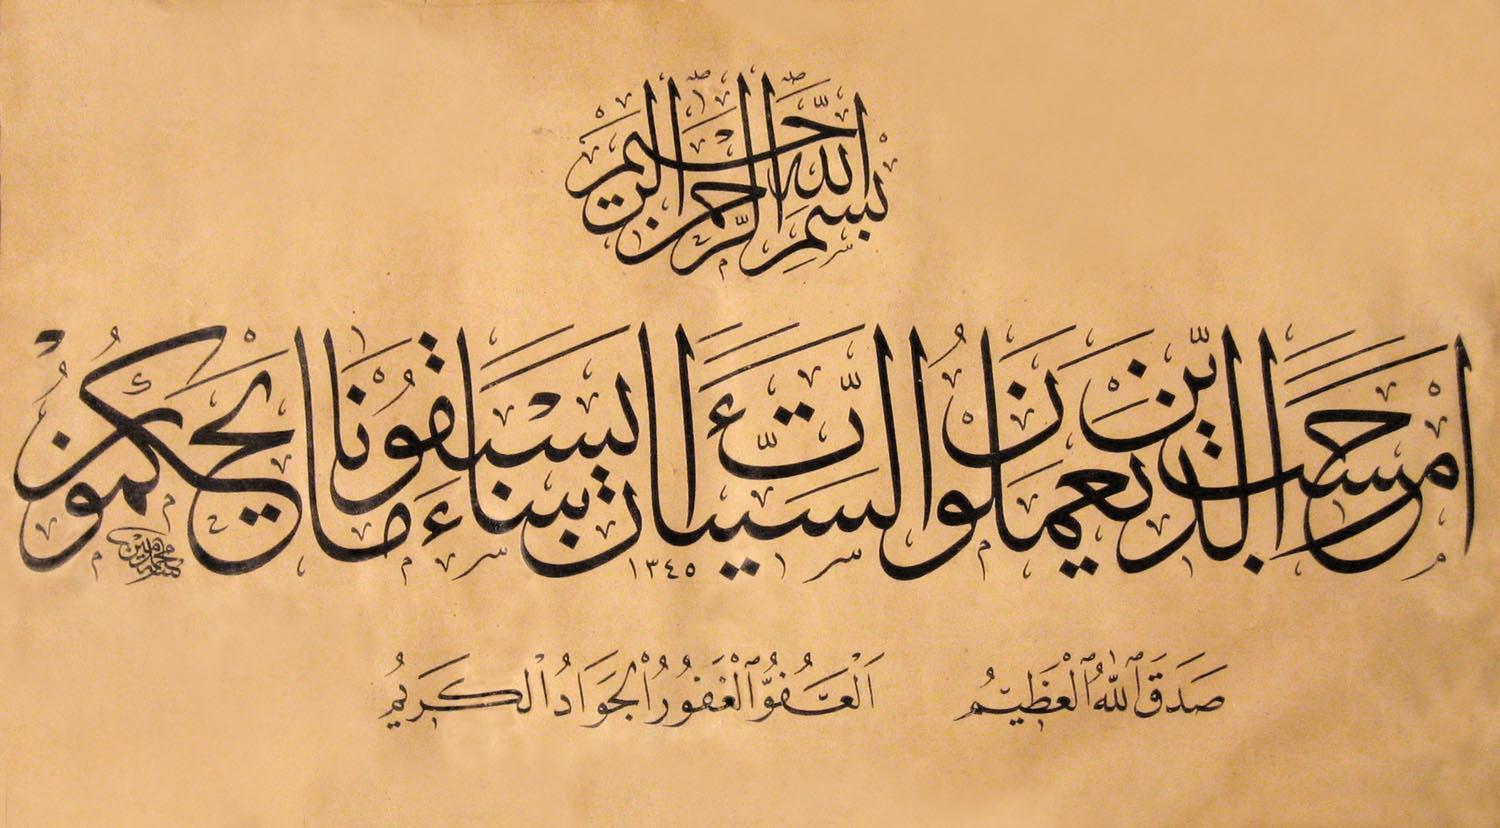 بِسْمِ اللَّهِ الرَّحْمَٰنِ الرَّحِيمِ
أَمْ حَسِبَ الَّذِينَ يَعْمَلُونَ السَّيِّئَاتِ أَنْ يَسْبِقُونَا سَاءَ مَا يَحْكُمُونَ
١٣٤٥
صَدَقَ ٱللّٰهُ ٱلْعَظِيمُ ٱلْعَفُوُّ ٱلْغَفُورُ الْجَوَادُ الْكَرِيمُ